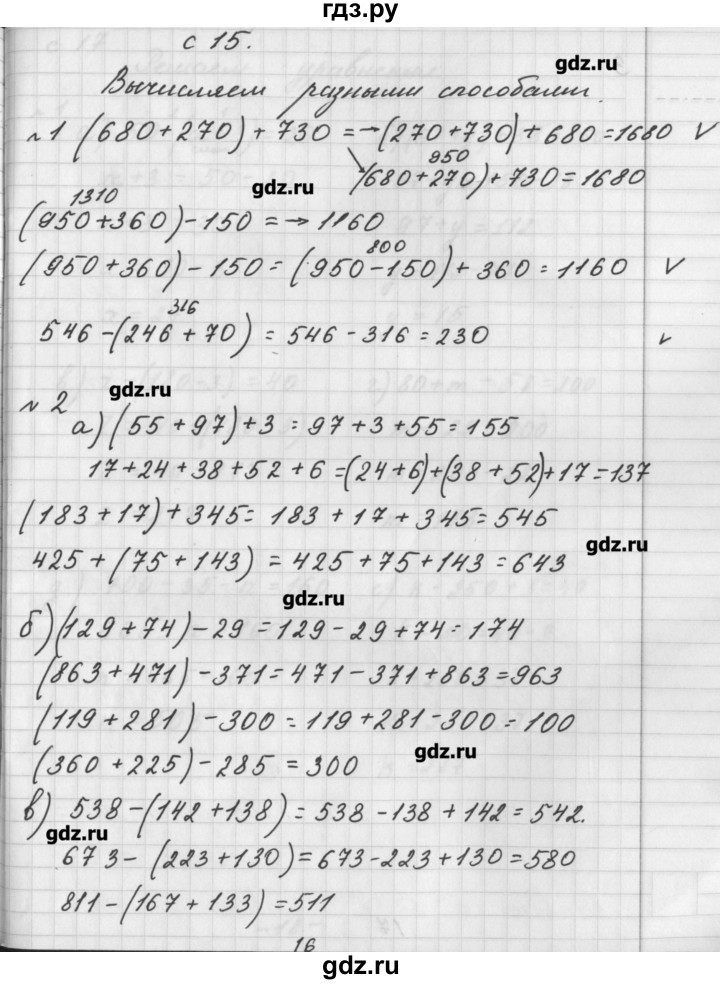 гдз.ру
с 15.
gdz.ru
Вычисляем разными способами.
№1 (680+270)+730 =→(270+730)+680=1680 V
950
(680+270)+730=1680
gdz.ru
1310
(950+360)-150=→1160
800
(950+360)-150=(950-150)+360=1160 V
316
546-(246+70)=546-316=230 v
gdz.ru
№2
а)(55+97)+3=97+3+55=155
17+24+38+52+6=(24+6)+(38+52)+17=137
(183+17)+345=183+17+345=545
gdz.ru
425+(75+143)=425+75+143=643
gdz.ru
б)(129+74)-29=129-29+74=174
(863+471)-371=471-371+863=963
(119+281)-300=119+281-300=100
gdz.ru
(360+225)-285=300
в) 538-(142+138)=538-138+142=542.
gdz.ru
673-(223+130)=673-223+130=580
811-(167+133)=511
16
gdz.ru